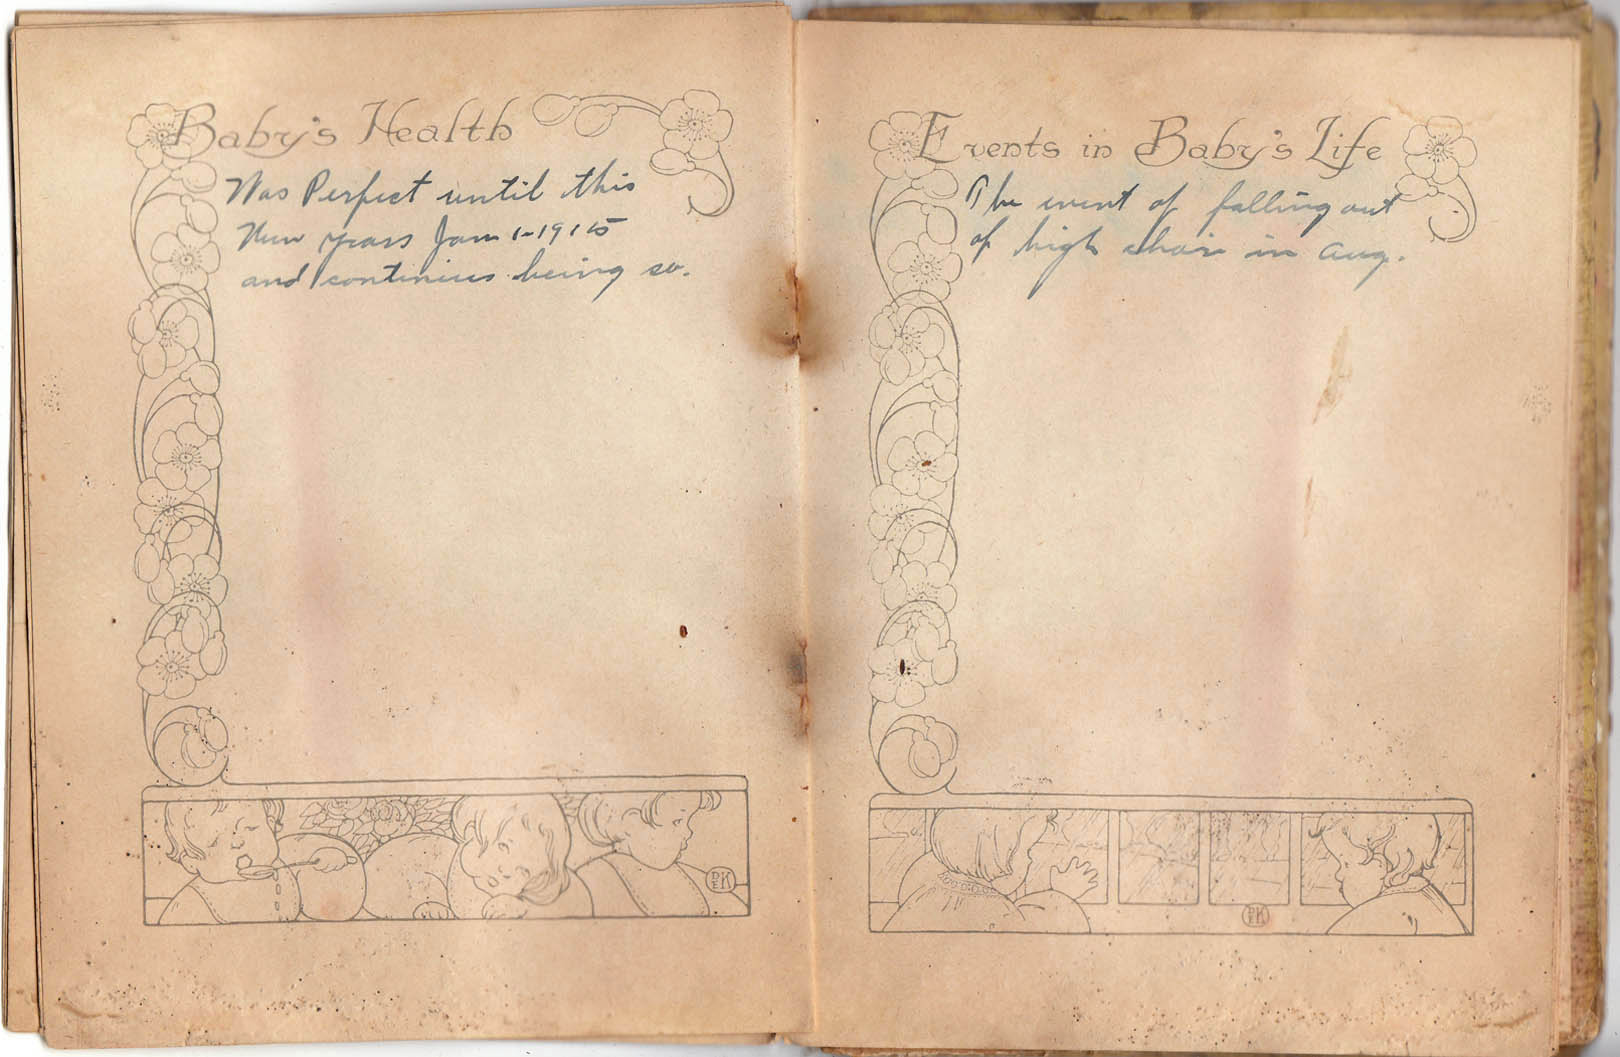 Baby's Health
Was Perfect until this
New Years Jan 1-1915
and continues being so.
Events in Baby's Life
The event of falling out
of high chair in Aug.